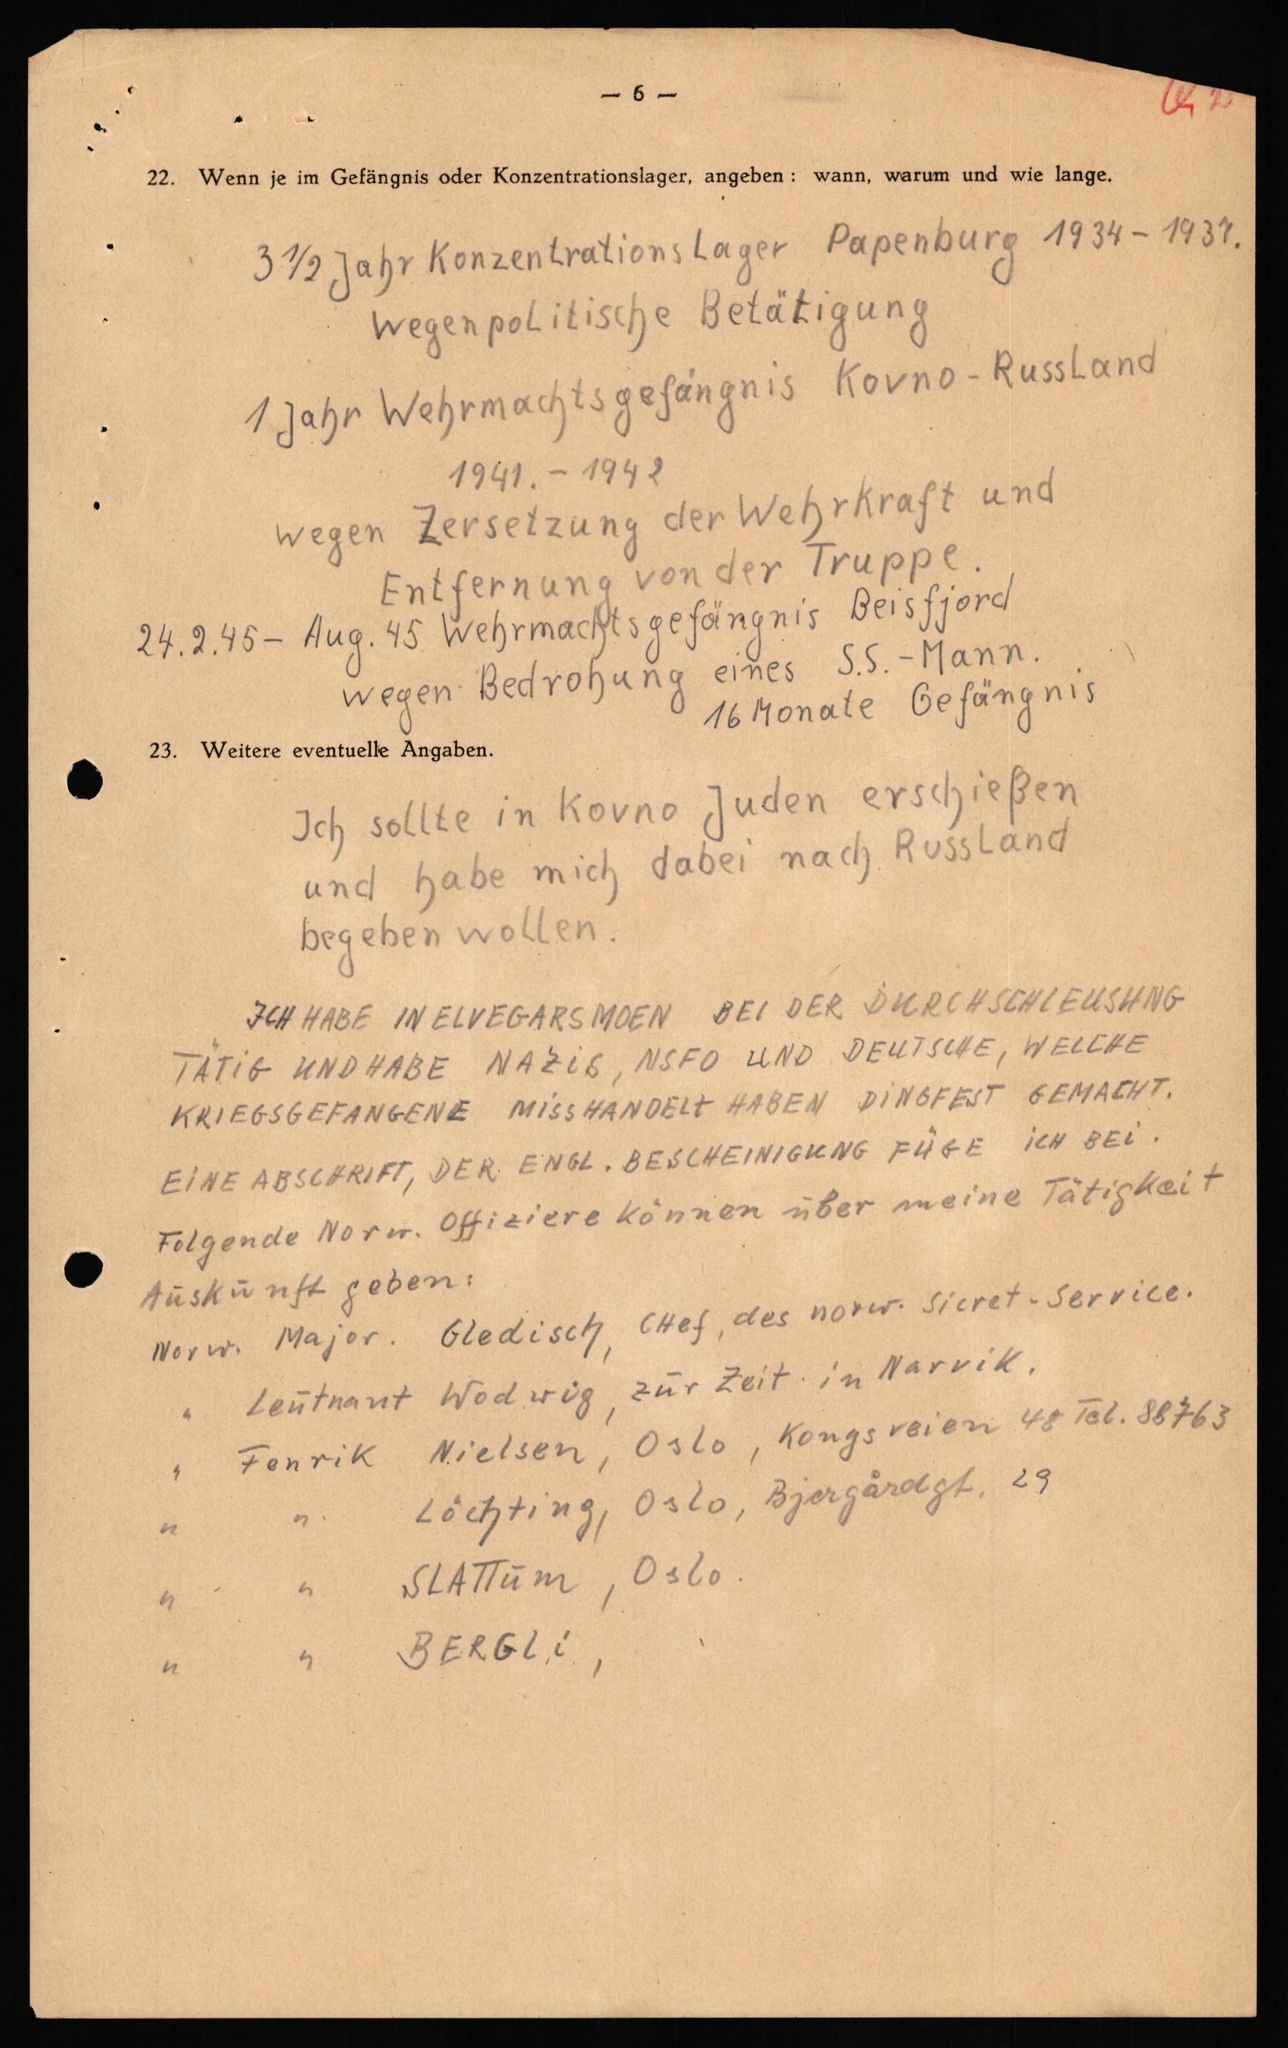 — 6 —
22. Wenn je im Gefängnis oder Konzentrationslager, angeben: wann, warum und wie lange.
3 1/2 Jahr Konzentrationslager Papenburg 1934 - 1937.
wegen politische Betätigung
1 Jahr Wehrmachtsgefängnis Kovno - Russland
1941. - 1942
wegen Zersetzung der Wehrkraft und
Entfernung von der Truppe.
24.2.45 - Aug. 45 Wehrmachtsgefängnis Beisfjord
wegen Bedrohung eines S.S.-Mann.
16 Monate Gefängnis
23. Weitere eventuelle Angaben.
Ich sollte in Kovno Juden erschießen
und habe mich dabei nach Russland
begeben wollen.
ICH HABE IN ELVEGARSMOEN BEI DER DURCHSCHLEUSUNG
TÄTIG UND HABE NAZIS, NSFO UND DEUTSCHE, WELCHE
KRIEGSGEFANGENE MISSHANDELT HABEN DINGFEST GEMACHT.
EINE ABSCHRIFT, DER ENGL. BESCHEINIGUNG FÜGE ICH BEI.
Folgende Norw. Offiziere können über meine Tätigkeit
Auskunft geben:
Norw. Major. Gledisch, Chef, des norw. Sicret-Service.
" Leutnant Wodwig, zur Zeit in Narvik.
" Fenrik Nielsen, Oslo, Kongsveien 48 Tel. 88763
" " Löchting, Oslo, Bjergårdgt. 29
" " SLATTUM, Oslo.
" " BERGLI,